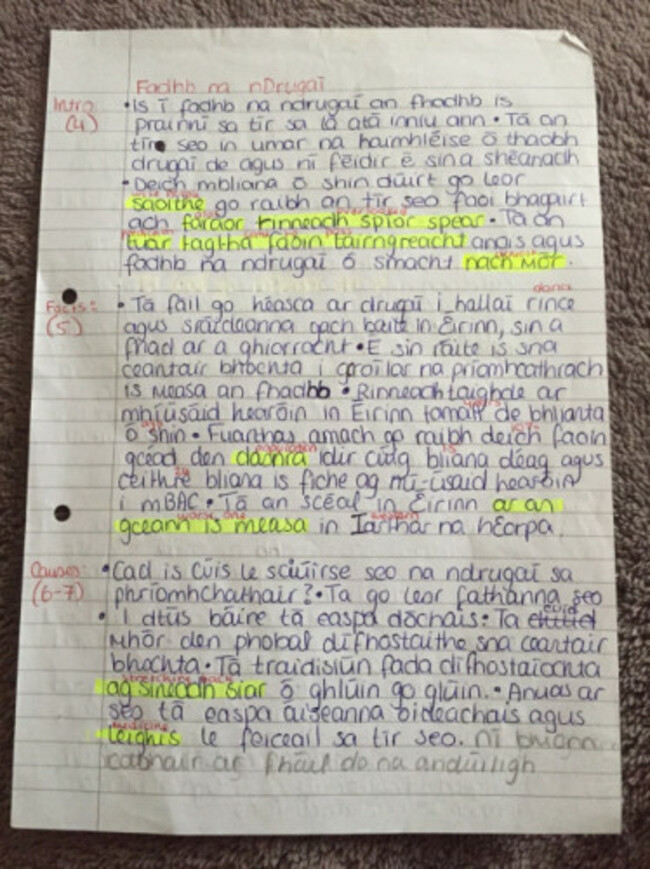 Fadhb na nDrugaí
Intro
(4)
• Is í fadhb na ndrugaí an fhadhb is
práinní sa tír sa lá atá inniu ann • Tá an
tír seo in umar na haimhléise ó thaobh
drugaí de agus ní féidir é sin a shéanadh
• Deich mbliana ó shin dúirt go leor
saoithe go raibh an tír seo faoi bhagairt
ach faraor rinneadh spior spear • Tá an
tuar tagtha faoin tairngreacht anois agus
fadhb na ndrugaí ó smacht nach mór.
dance
Facts:
(5)
• Tá fáil go héasca ar drugaí i hallaí rince
agus sráideanna gach baile in Éirinn, sin a
fhad ar a ghiorracht • É sin ráite is sna
ceantair bhochta i gcroílar na príomhcathrach
is measa an fhadhb • Rinneadh taighde ar
mhíúsáid hearóin in Éirinn tamall de bhlianta
years
ó shin • Fuarthas amach go raibh deich faoin
ago 10%
gcéad den daonra idir cúig bliana déag agus
population 15
ceithre bliana is fiche ag mí-úsáid hearóin
24
i mBÁC • Tá an scéal in Éirinn ar an
gceann is measa in Iarthar na hEorpa.
worst one western
Causes
(6-7)
• Cad is cúis le sciúirse seo na ndrugaí sa
phríomhchathair? • Tá go leor fáthanna seo
• I dtús báire tá easpa dóchais: Tá cuid
mhór den phobal dífhostaithe sna ceantair
bhochta • Tá traidisiún fada dífhostaíochta
stretching back
ag síneadh siar ó ghlúin go glúin. • Anuas ar
seo tá easpa áiseanna oideachais agus
medicine
leighis le feiceáil sa tír seo. Ní bhíonn
cabhair ar fháil do na andúiligh